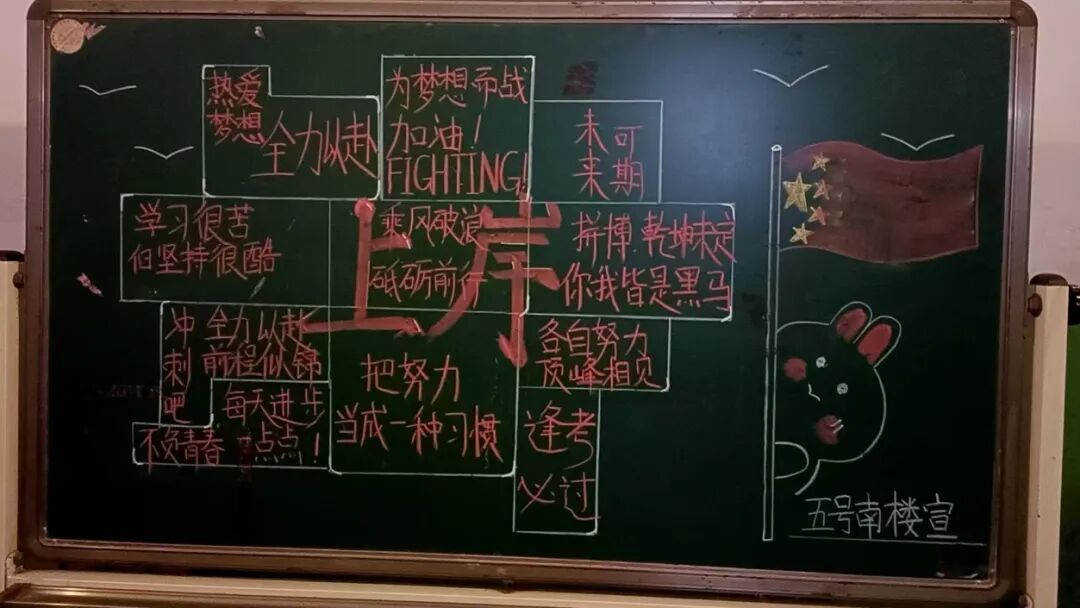 热爱
梦想
全力以赴
为梦想而战
加油！
FIGHTING!
未可
来期
学习很苦
但坚持很酷
上岸
乘风破浪
砥砺前行
拼博.乾坤未定
你我皆是黑马
冲刺吧
全力以赴
前程似锦
每天进步
一点点！
不负青春
把努力
当成一种习惯
各自努力
顶峰相见
逢考
必过
五号南楼宣